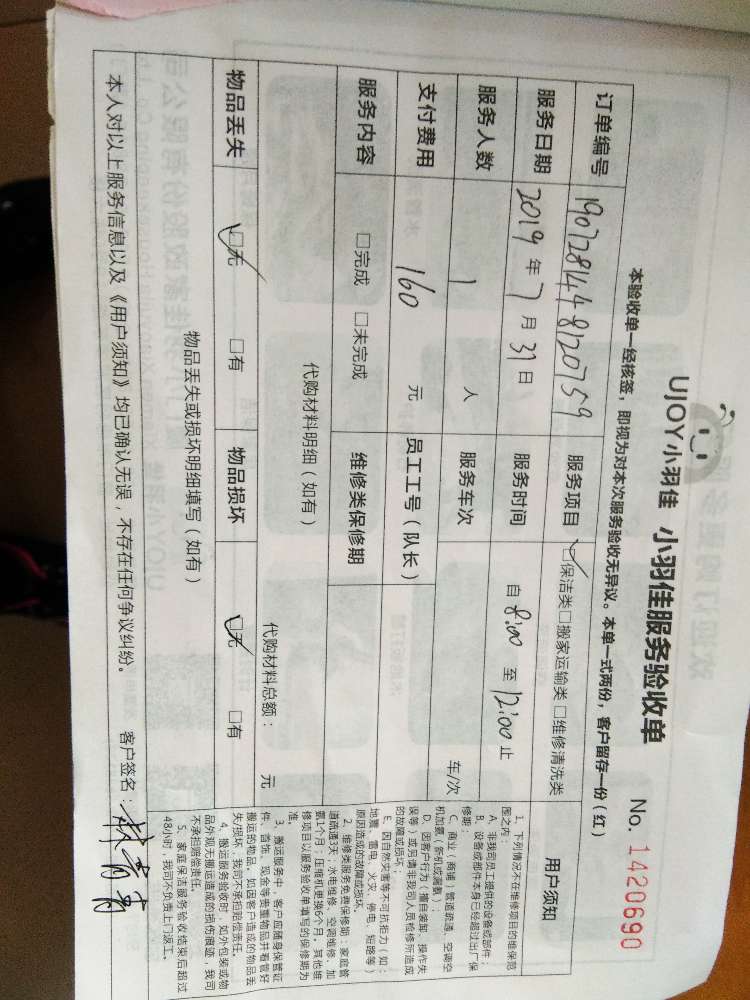 UJOY小羽佳 小羽佳服务验收单
No. 1420690
本验收单一经核签，即视为对本次服务验收无异议。本单一式两份，客户留存一份（红）
订单编号 1907281448120759 服务项目 保洁类□搬家运输类□维修清洗类
服务日期 2019年7月31日 服务时间 自8:00至12:00止
服务人数 1人 服务车次 车/次
支付费用 160元 员工工号（队长）
服务内容 □完成 □未完成 维修类保修期
代购材料明细（如有） 代购材料总额： 元
物品丢失 □无 □有 物品损坏 □无 □有
物品丢失或损坏明细填写（如有）
用户须知
1、下列情况不在维修项目的维保范
围之内：
A、非我司员工提供的设备或部件；
B、设备或部件本身已经超过出厂保
修期；
C、商业（商铺）管道疏通，空调空
机加氟（新机或漏氟）
D、因客户行为（擅自装卸、操作失
误等）或另请非我司人员检修所造成
的故障或损坏；
E、因自然灾害等不可抗拒力（如：
地震、雷电、火灾、停电、短路等）
原因造成的故障或损坏。
2、维修类服务免费保修期：家庭管
道疏通3天；水电维修、空调维修、加
氟1个月；压缩机更换6个月，其他维
修项目以服务验收单填写的保修期为
准。
3、搬运服务中，客户应随身保管证
件、首饰、现金等贵重物品并看管好
搬运的物品，如因客户造成的物品丢
失/损坏，我司不承担赔偿责任。
4、搬运服务验收时，如外包装或物
品外观无搬运造成的损伤痕迹，我司
不承担赔偿责任。
5、家庭保洁服务验收结束后超过
48小时，我司不负责上门返工。
本人对以上服务信息以及《用户须知》均已确认无误，不存在任何争议纠纷。 客户签名：林青青